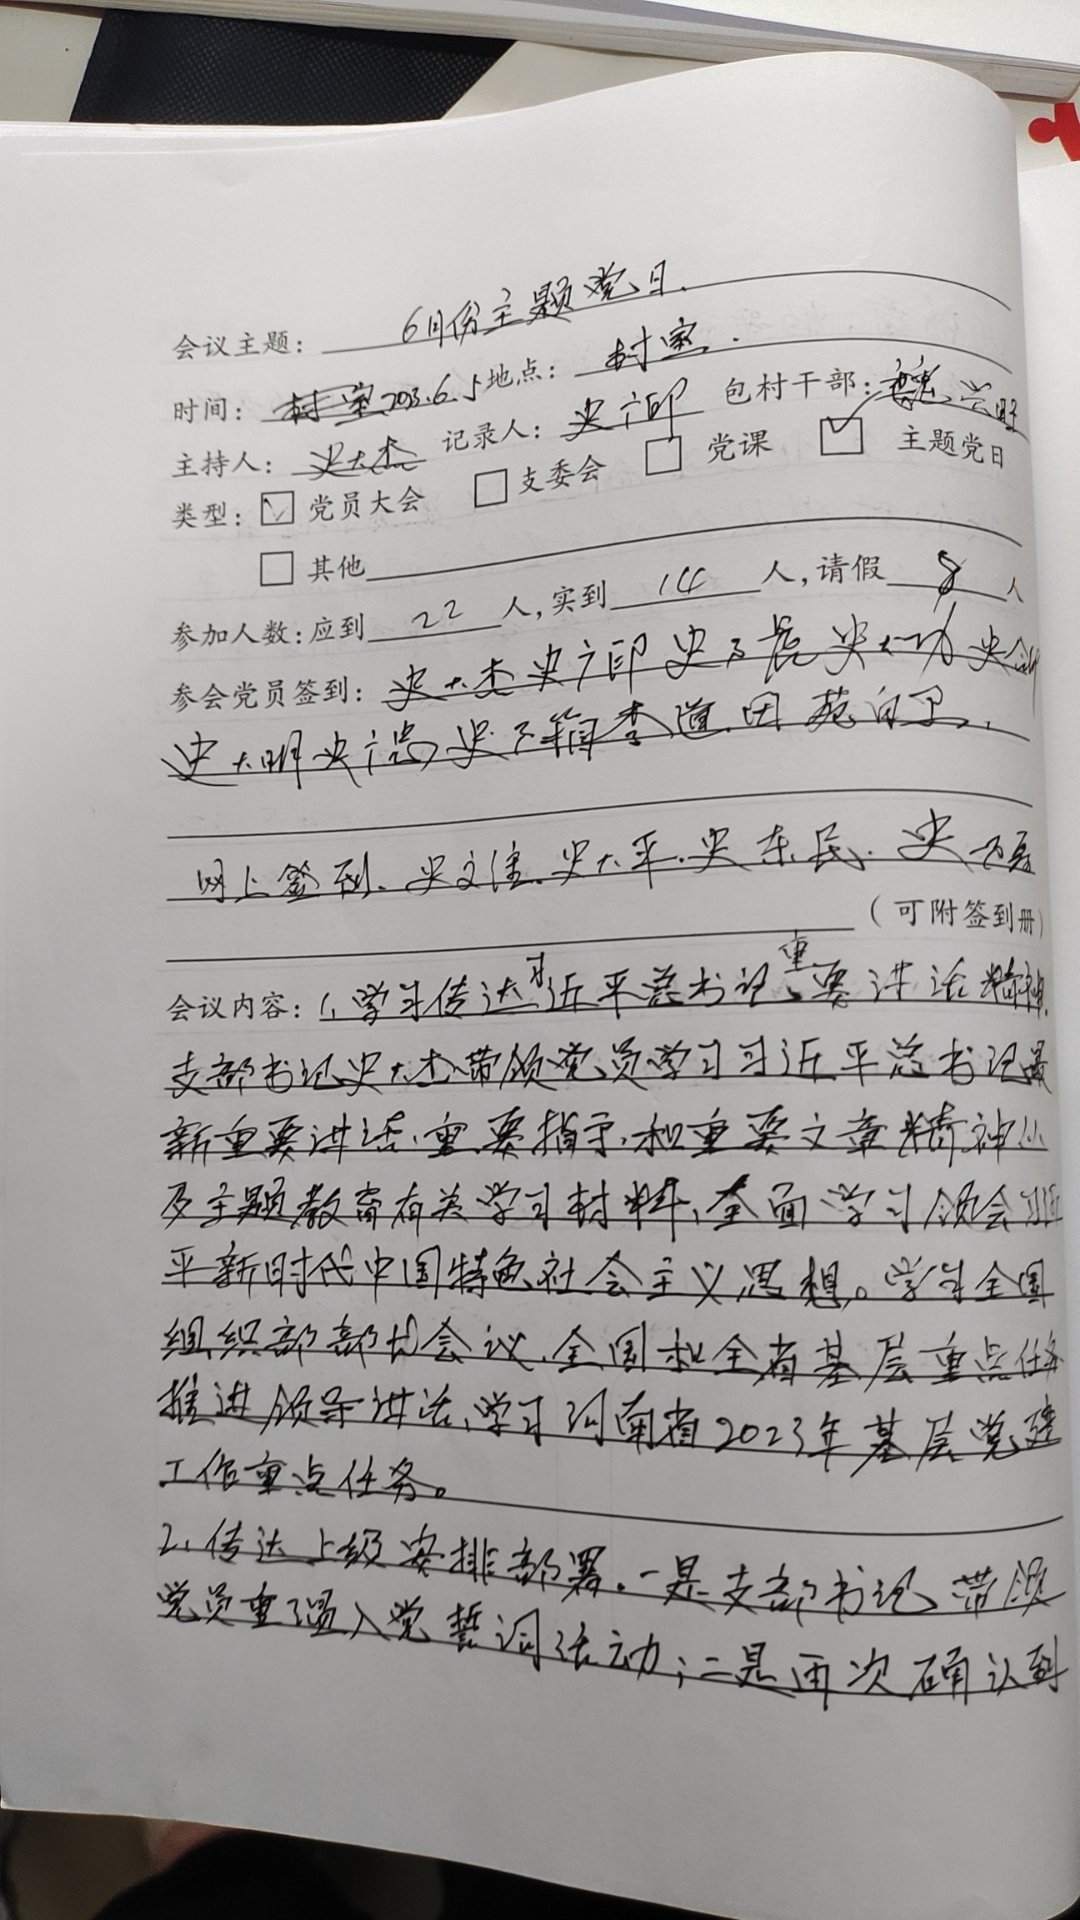 会议主题: 6月份主题党日.
时间: 村室2023.6.5 地点: 村室.
主持人: 史大杰 记录人: 史广印 包村干部: 魏兴旺
类型: ☑ 党员大会 □ 支委会 □ 党课 ☑ 主题党日
□ 其他
参加人数:应到 22 人,实到 14 人,请假 8 人
参会党员签到: 史大杰 史广印 史 长 史大功 史
史大明 史广忠 史 李道田 苑 
网上签到、史文 、史大平、史东民、史
(可附签到册)
会议内容: 1、学习传达习近平总书记重要讲话精神,
支部书记史大杰带领党员学习习近平总书记最
新重要讲话、重要指示、和重要文章精神以
及主题教育有关学习材料、全面学习领会习近
平新时代中国特色社会主义思想。学习全国
组织部部长会议、全国和全省基层重点任务
推进领导讲话、学习河南省2023年基层党建
工作重点任务。
2、传达上级安排部署。一是支部书记带领
党员重温入党誓词活动;二是再次确认到